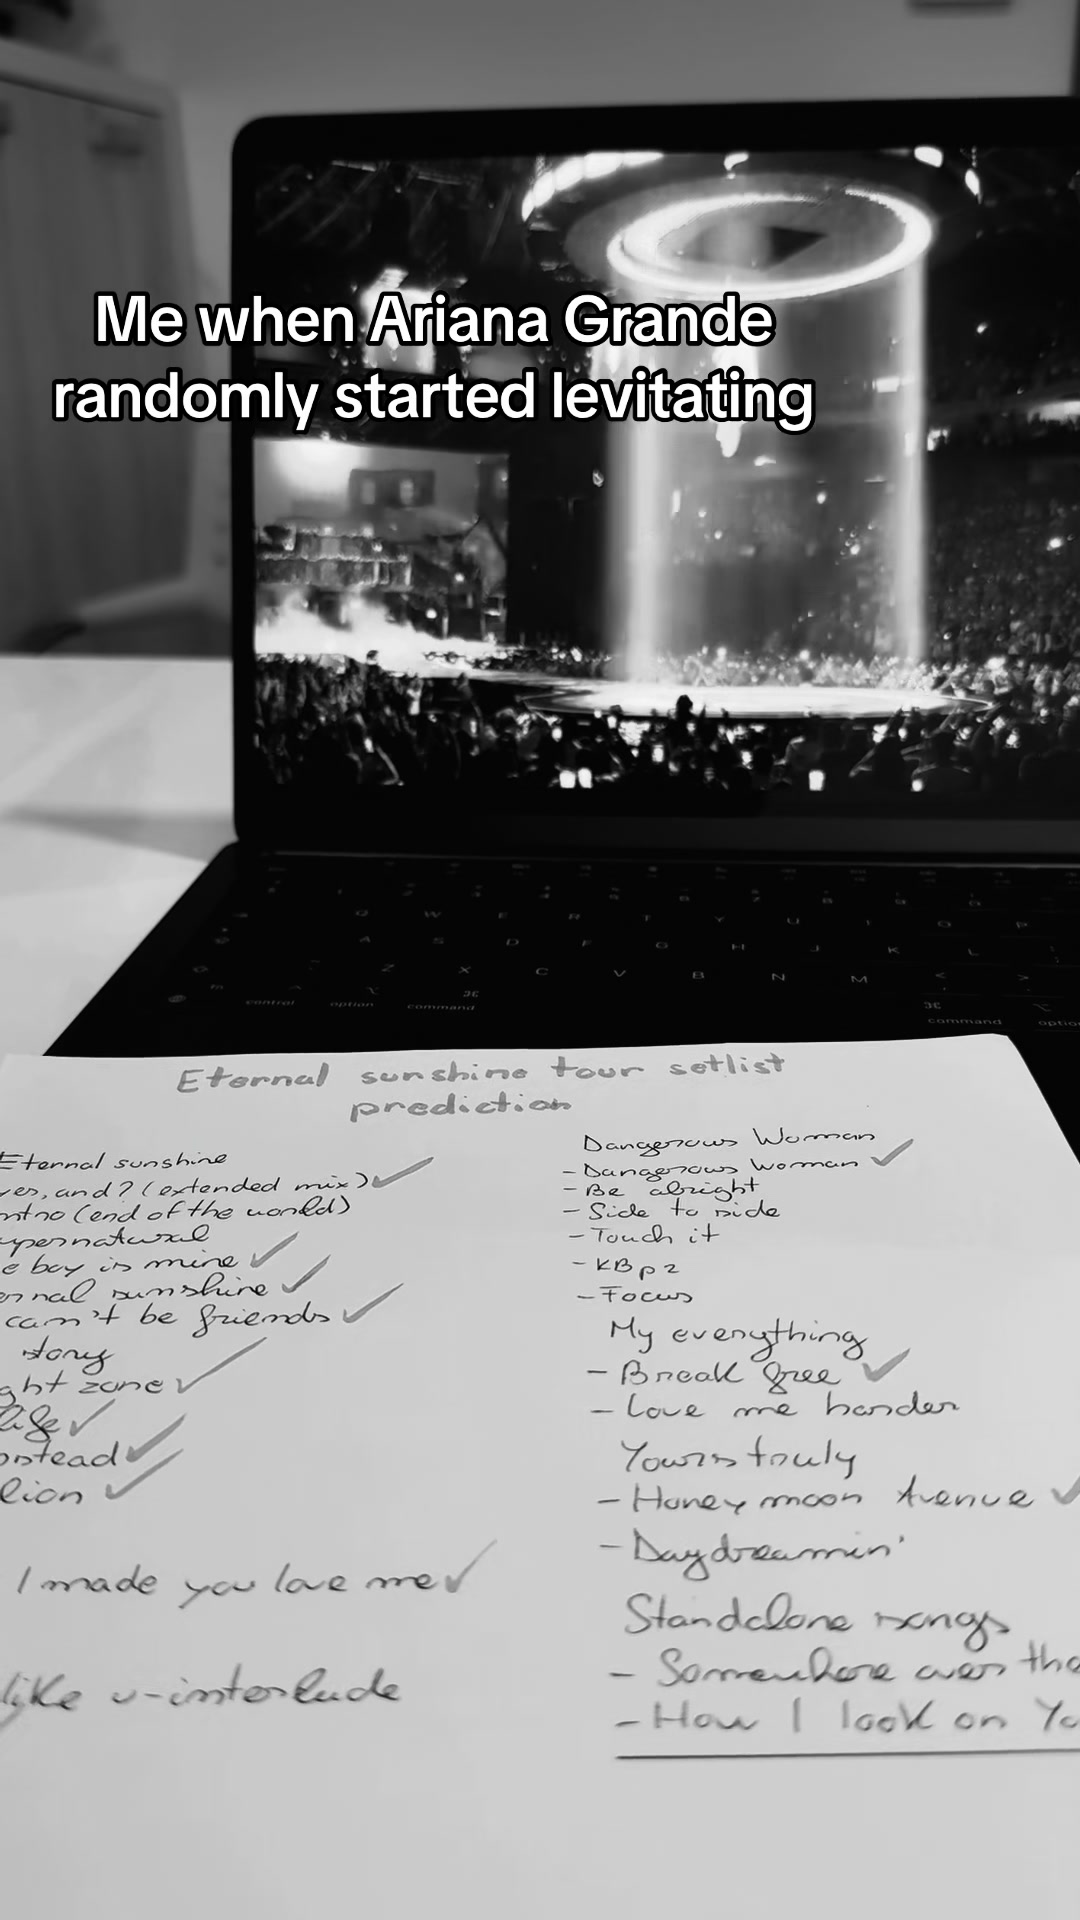 Me when Ariana Grande
randomly started levitating
control option command
command option
Eternal sunshine tour setlist
prediction
Eternal sunshine
yes, and? (extended mix)
intro (end of the world)
supernatural
e boy is mine
ernal sunshine
can't be friends
story
ght zone
life
nstead
lion
I made you love me
like u-interlude
Dangerous Woman
- Dangerous woman
- Be alright
- Side to side
- Touch it
- KB p2
- Focus
My everything
- Break free
- Love me harder
Yours truly
- Honeymoon Avenue
- Daydreamin'
Standalone songs
- Somewhere over the
- How I look on Yo